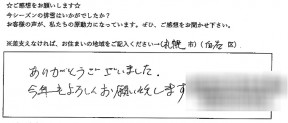 ☆ご感想をお願いします☆
今シーズンの排雪はいかがでしたか？
お客様の声が、私たちの原動力になっています。ぜひ、ご感想をお聞かせ下さい。
※差支えなければ、お住まいの地域をご記入ください→(札幌 市)(白石 区)
ありがとうございました。
今年もよろしくお願い致します